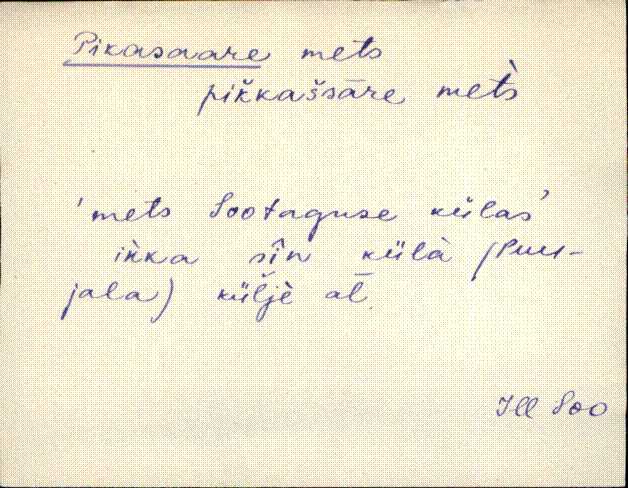 Pikasaare mets
pikkašsāre mets̀
'mets Sootaguse külas'
ikka sîn külà (Puu-
jala) küljè al
Jll Soo